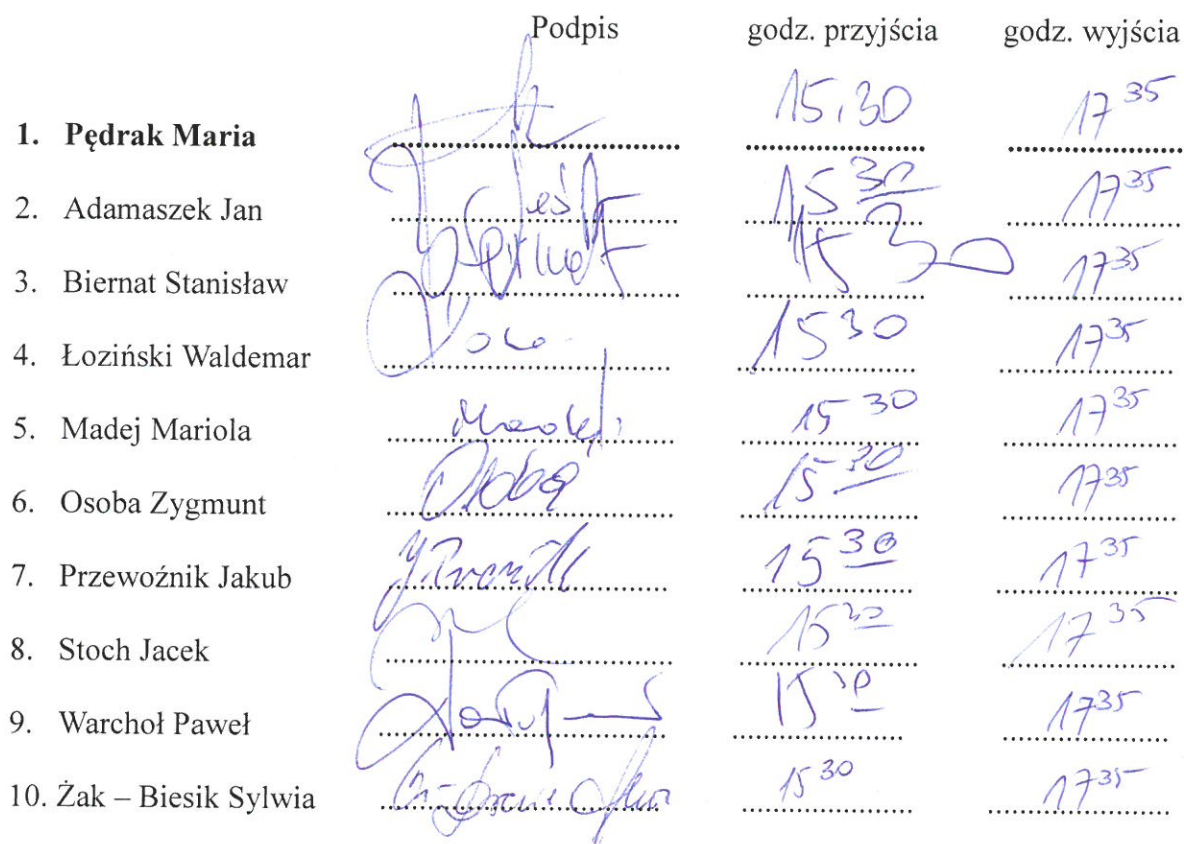 Podpis godz. przyjścia godz. wyjścia
1. Pędrak Maria 15.30 17 35
2. Adamaszek Jan 15 30 17 35
3. Biernat Stanisław 15 30 17 35
4. Łoziński Waldemar 15 30 17 35
5. Madej Mariola 15 30 17 35
6. Osoba Zygmunt Osoba 15 30 17 35
7. Przewoźnik Jakub 15 30 17 35
8. Stoch Jacek 15 30 17 35
9. Warchoł Paweł 15 30 17 35
10. Żak – Biesik Sylwia 15 30 17 35